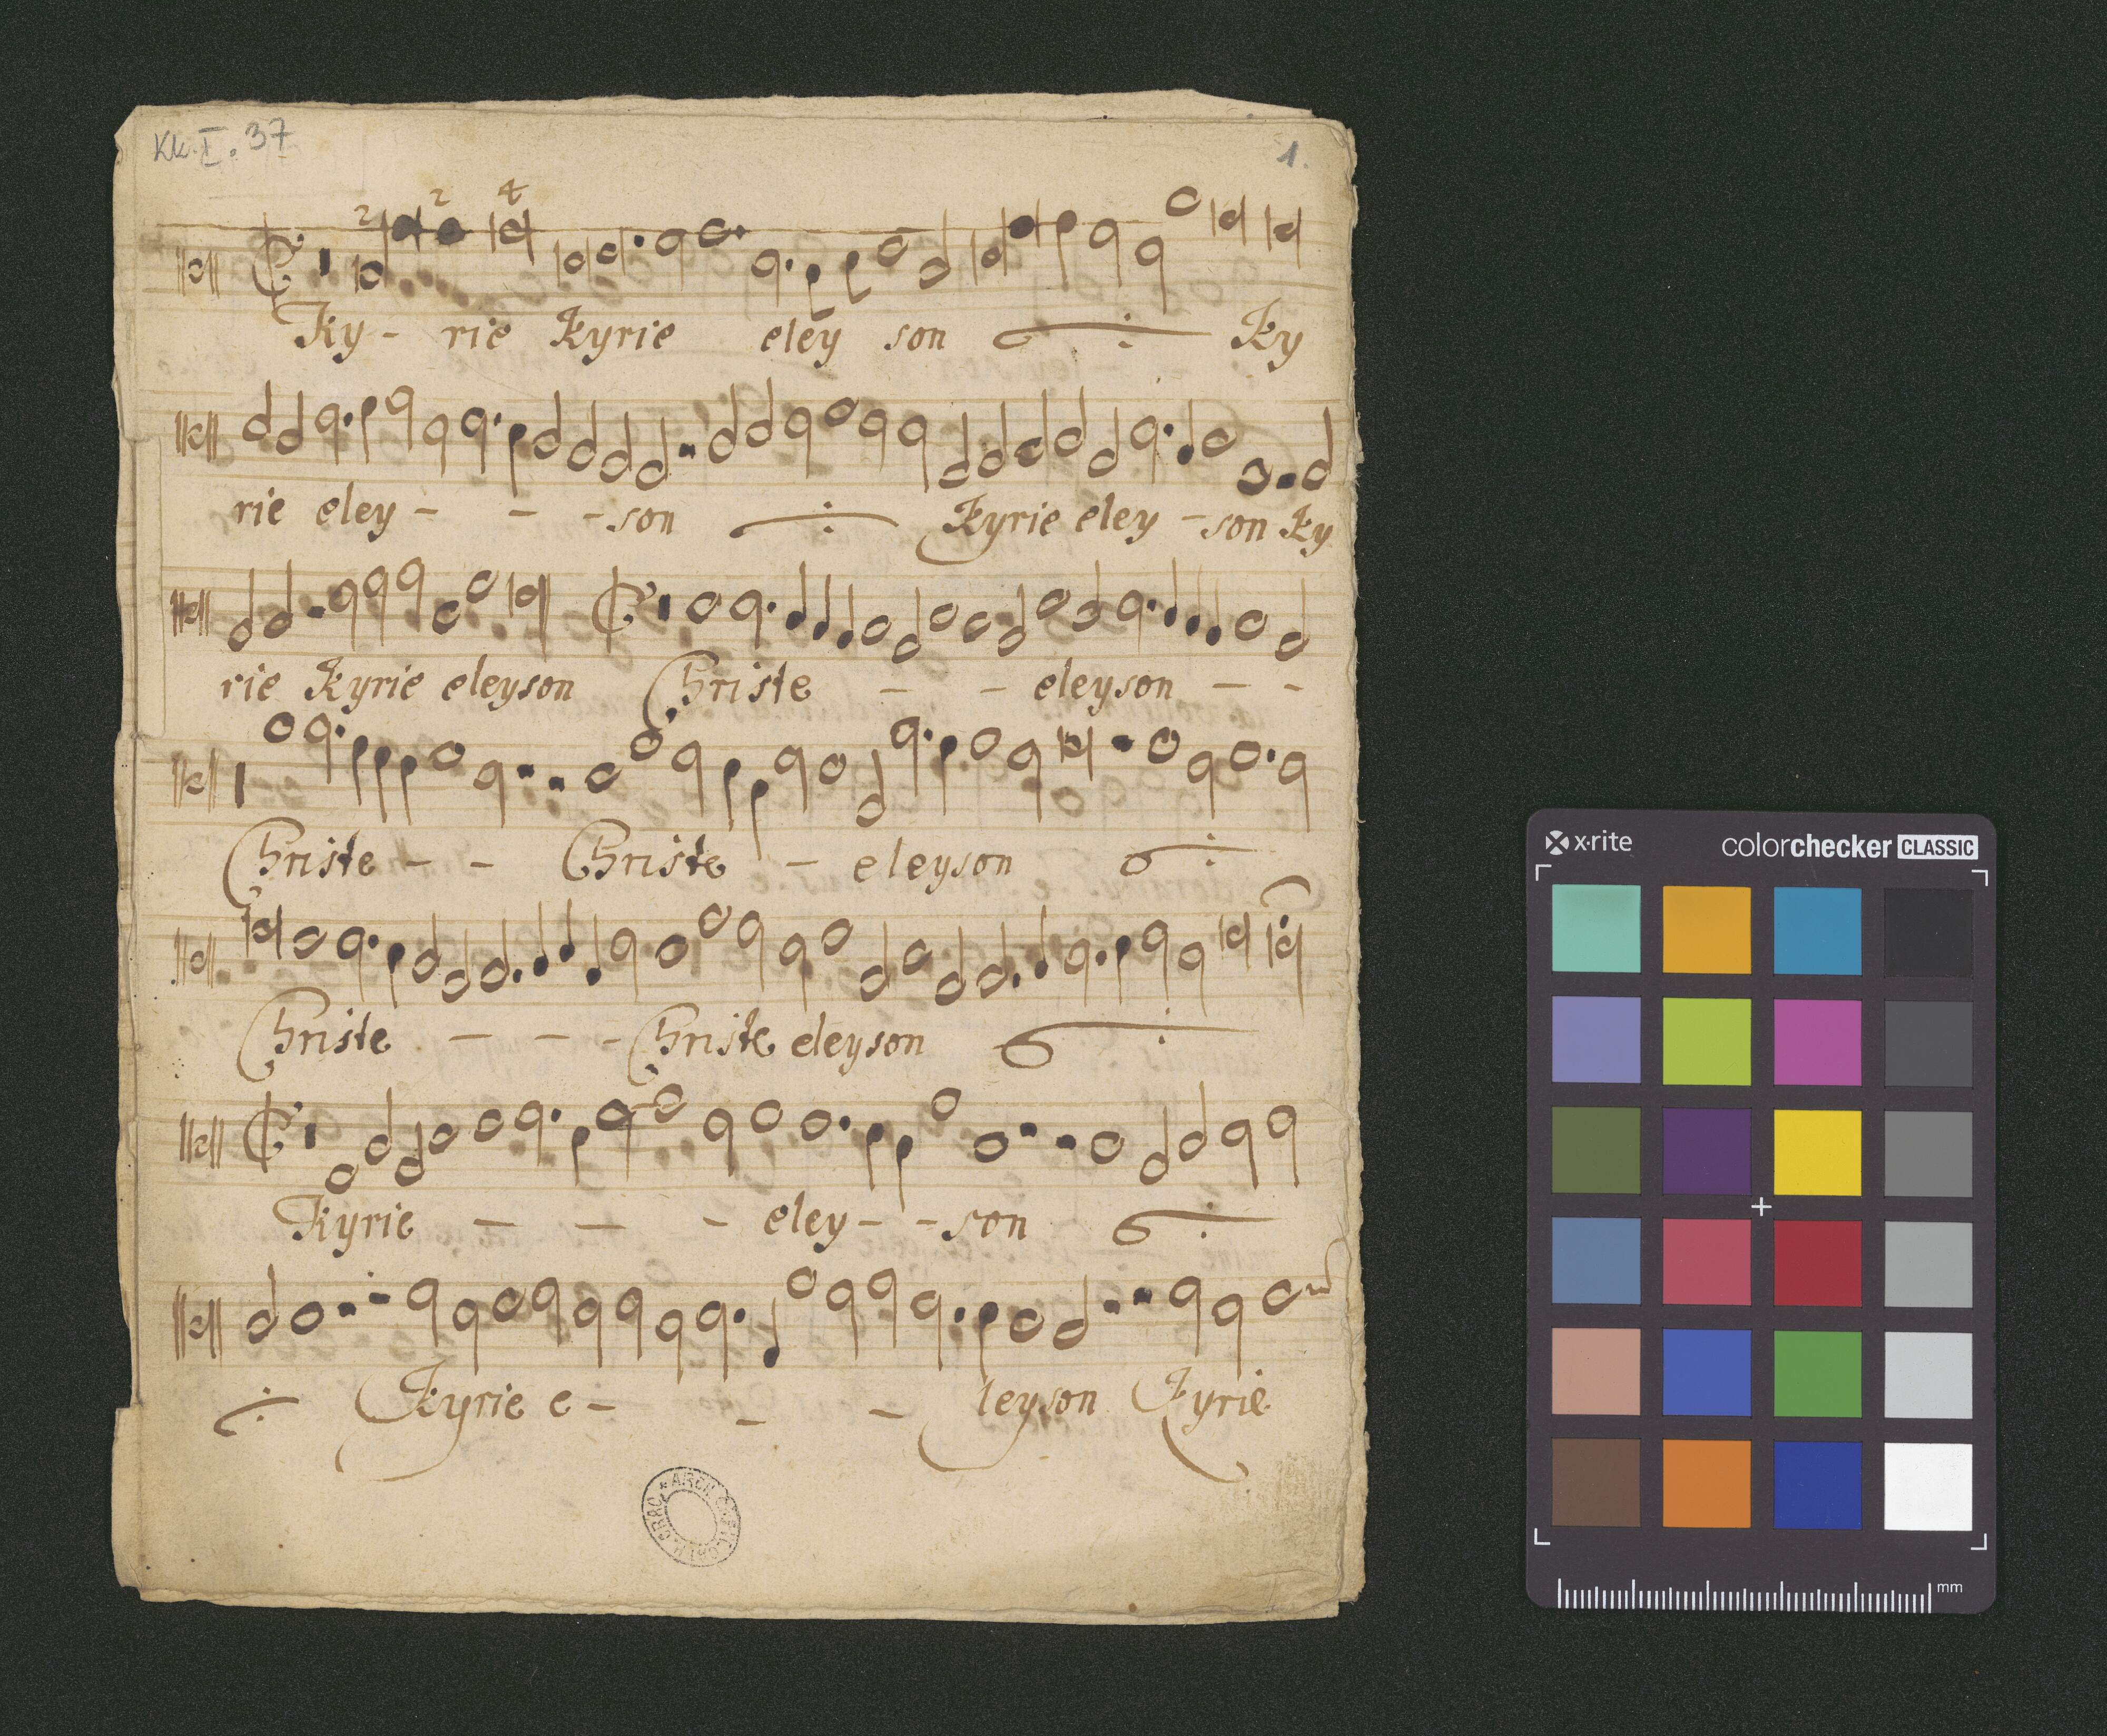 Kk. I. 37
1.
2 2 4
Ky - rie Kyrie eley son Ky
rie eley - - - son Kyrie eley - son Ky
rie Kyrie eleyson Christe - - eleyson - -
Christe - - Christe - eleyson
Christe - - - Christe eleyson
Kyrie - - - eley - - son
Kyrie e - - - leyson Kyrie
x·rite colorchecker CLASSIC
mm